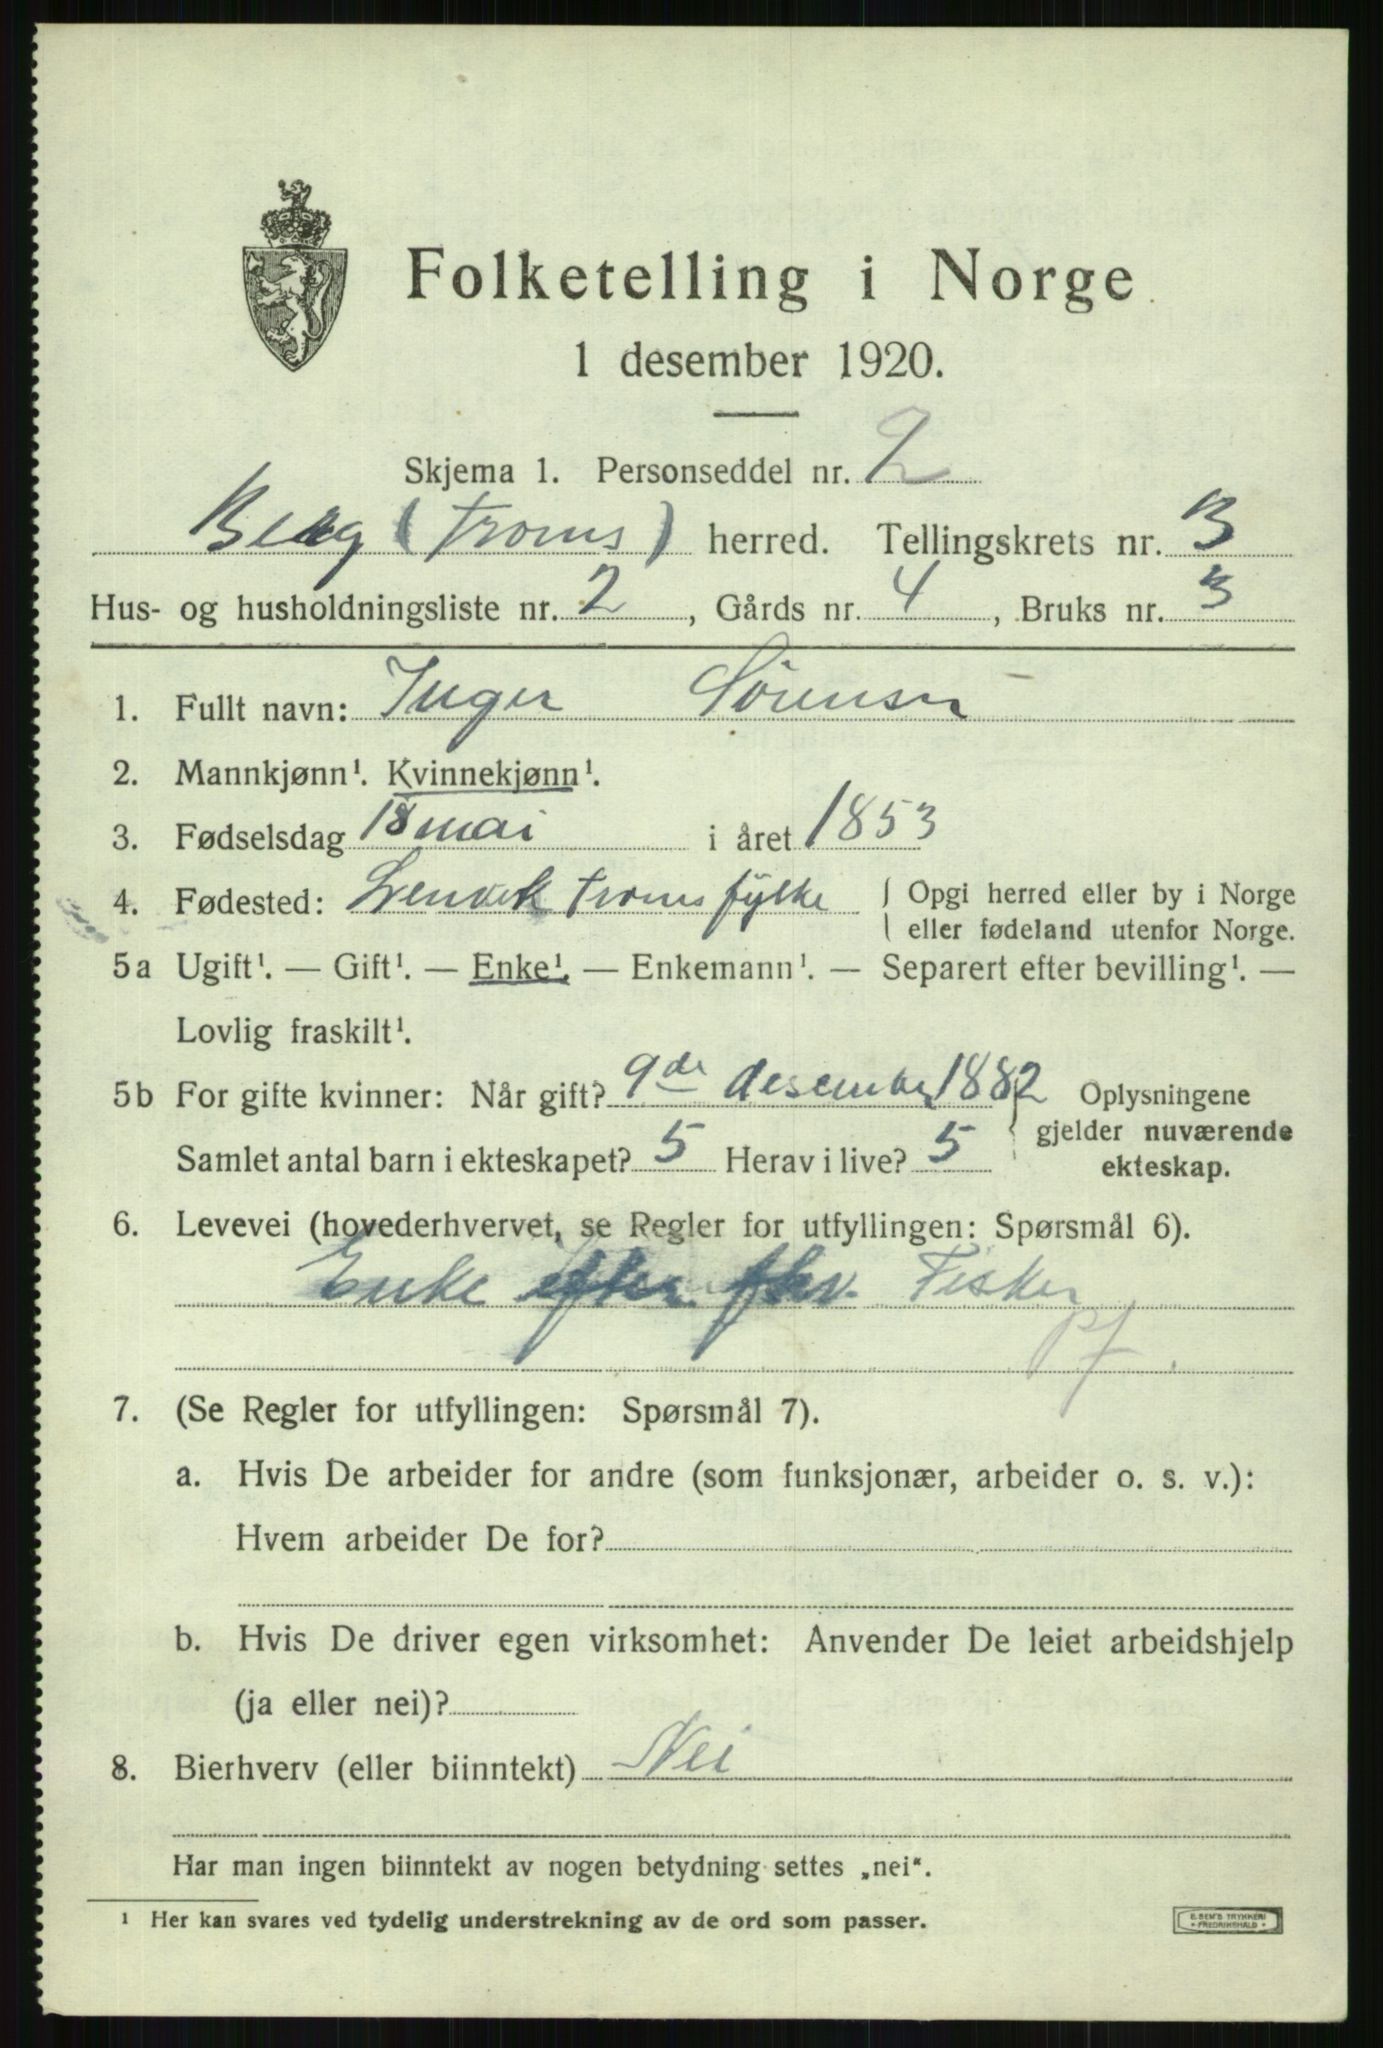 Folketelling i Norge
1 desember 1920.
Skjema 1. Personseddel nr. 2
Berg (Troms) herred. Tellingskrets nr. 3
Hus- og husholdningsliste nr. 2, Gårds nr. 4, Bruks nr. 3
1. Fullt navn: Inger Sörensen
2. Mannkjønn¹. Kvinnekjønn¹.
3. Fødselsdag 18 mai i året 1853
4. Fødested: Lenvik Troms fylke { Opgi herred eller by i Norge
eller fødeland utenfor Norge.
5a Ugift¹. — Gift¹. — Enke¹. — Enkemann¹. — Separert efter bevilling¹. —
Lovlig fraskilt¹.
5b For gifte kvinner: Når gift? 9de desember 1882 } Oplysningene
gjelder nuværende
Samlet antal barn i ekteskapet? 5 Herav i live? 5 ekteskap.
6. Levevei (hovederhvervet, se Regler for utfyllingen: Spørsmål 6).
Enke efter fhv. Fisker
pf
7. (Se Regler for utfyllingen: Spørsmål 7).
a. Hvis De arbeider for andre (som funksjonær, arbeider o. s. v.):
Hvem arbeider De for?
b. Hvis De driver egen virksomhet: Anvender De leiet arbeidshjelp
(ja eller nei)?
8. Bierhverv (eller biinntekt) Nei
Har man ingen biinntekt av nogen betydning settes „nei“.
¹ Her kan svares ved tydelig understrekning av de ord som passer.
E. SEM'S TRYKKERI
• FREDRIKSHALD •